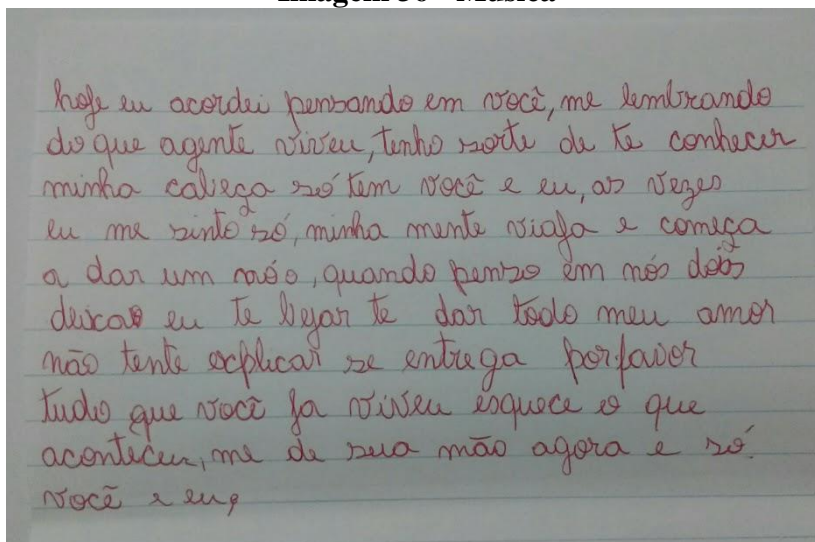 Imagem 56 - Música
hoje eu acordei pensando em você, me lembrando
do que agente viveu, tenho sorte de te conhecer
minha cabeça só tem você e eu, as vezes
eu me sinto só, minha mente viaja e começa
a dar um nóo, quando penso em nós dois
deixa eu te bejar te dar todo meu amor
não tente explicar se entrega porfavor
tudo que você ja viveu esquece o que
aconteceu, me de sua mão agora e só
você e eu,